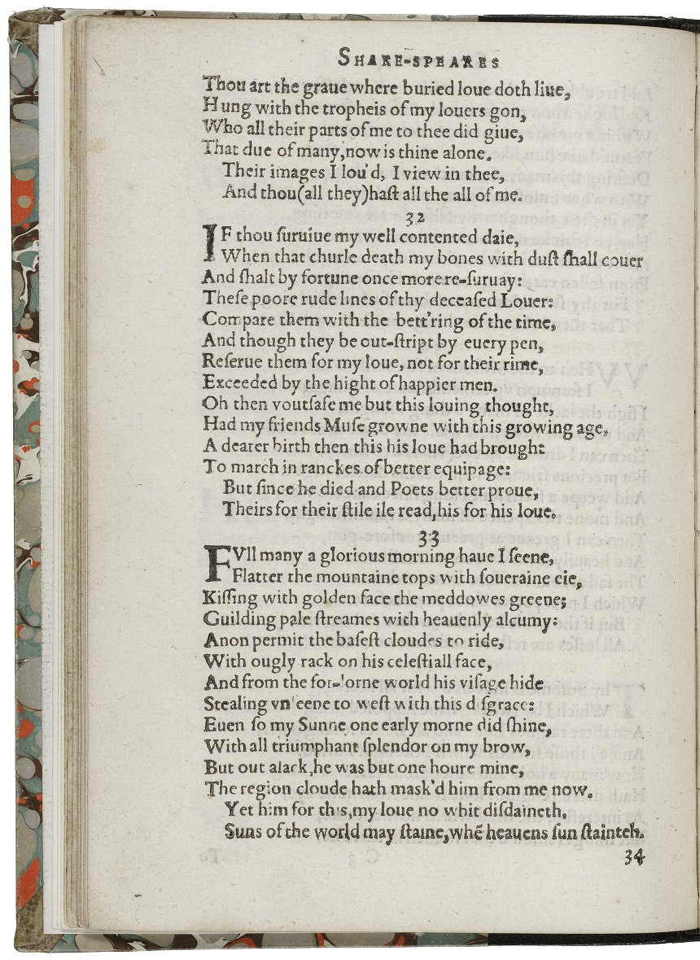 SHAKE-SPEARES
Thou art the graue where buried loue doth liue,
Hung with the tropheis of my louers gon,
Who all their parts of me to thee did giue,
That due of many,now is thine alone.
Their images I lou'd, I view in thee,
And thou(all they)haſt all the all of me.
32
IF thou ſuruiue my well contented daie,
When that churle death my bones with duſt ſhall couer
And ſhalt by fortune once more re-ſuruay:
Theſe poore rude lines of thy deceaſed Louer:
Compare them with the bett'ring of the time,
And though they be out-ſtript by euery pen,
Reſerue them for my loue, not for their rime,
Exceeded by the hight of happier men.
Oh then voutſafe me but this louing thought,
Had my friends Muſe growne with this growing age,
A dearer birth then this his loue had brought
To march in ranckes of better equipage:
But ſince he died and Poets better proue,
Theirs for their ſtile ile read,his for his loue.
33
FVll many a glorious morning haue I ſeene,
Flatter the mountaine tops with ſoueraine eie,
Kiſſing with golden face the meddowes greene;
Guilding pale ſtreames with heauenly alcumy:
Anon permit the baſeſt cloudes to ride,
With ougly rack on his celeſtiall face,
And from the for-lorne world his viſage hide
Stealing vnſeene to weſt with this diſgrace:
Euen ſo my Sunne one early morne did ſhine,
With all triumphant ſplendor on my brow,
But out alack,he was but one houre mine,
The region cloude hath mask'd him from me now.
Yet him for this,my loue no whit diſdaineth,
Suns of the world may ſtaine,whẽ heauens ſun ſtainteh.
34